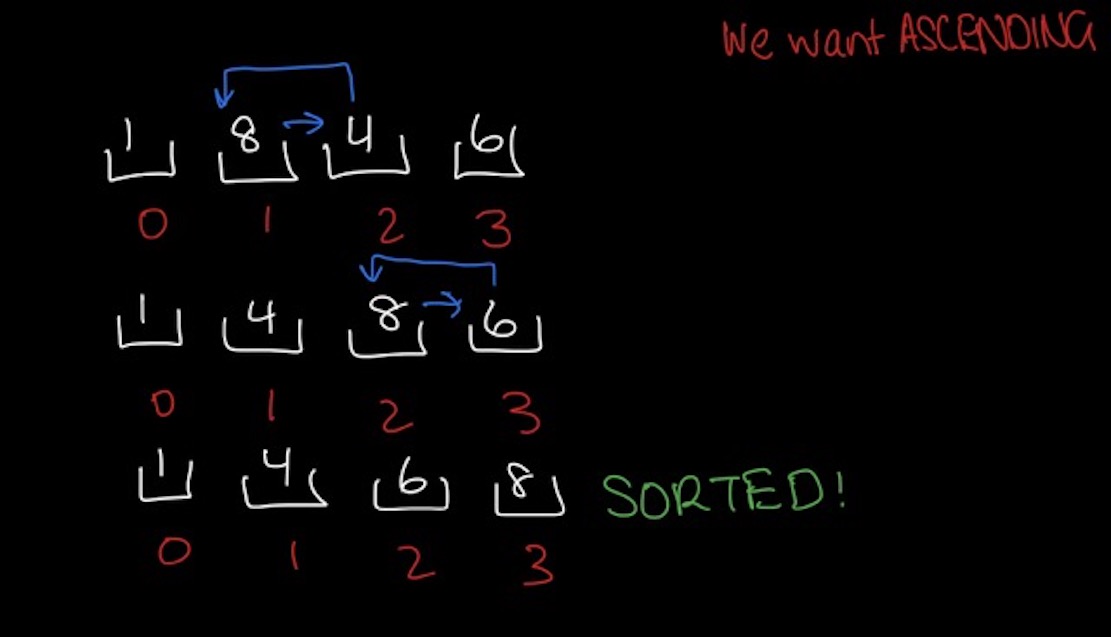 We want ASCENDING
1 8 4 6
0 1 2 3
1 4 8 6
0 1 2 3
1 4 6 8 SORTED!
0 1 2 3